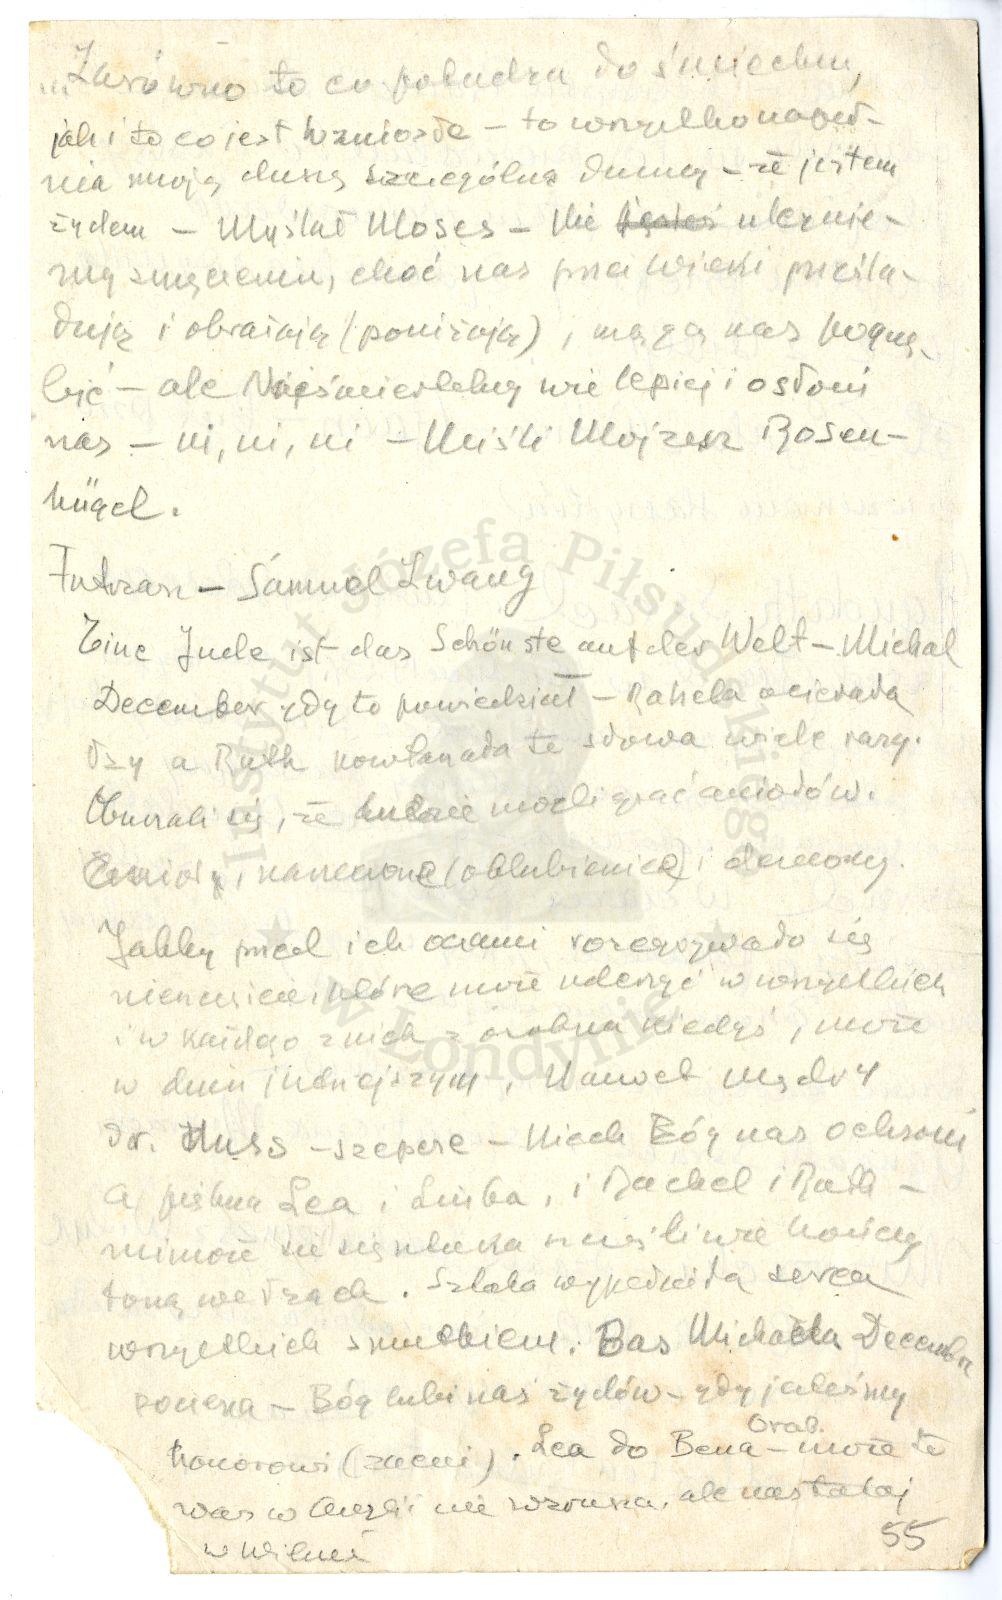 Zarówno to co pobudza do śmiechu,
jak i to co jest wzniosłe – to wszystko napeł-
nia moją duszę szczególną dumą – że jestem
żydem – Myślał Moses – Nie ulegnie-
my zmęczeniu, choć nas przez wieki prześla-
dują i obrażają (poniżają), mogą nas pognę-
bić – ale Nieśmiertelny wie lepiej i osłoni
nas – ni, ni, ni – Myśli Mojżesz Rosen-
hügel.
Futrzarz – Samuel Zwang
Eine Jude ist das Schönste auf der Welt – Michal
December gdy to powiedział – Rahela ocierała
łzy a Ruth powtarzała te słowa wiele razy.
że ludzie mogli grać aniołów.
i narzeczoną (oblubienicę) i demony.
Jakby przed ich oczami rozegrywało się
nieszczęście, które może uderzyć w wszystkich
i w każdego z nich z osobna kiedyś, może
w dniu jutrzejszym. Nawet mądry
dr. Huss – szepcze – Niech Bóg nas ochroni
a piękna Lea i Luba, i Rachel i Ruth –
mimo że się sztuka szczęśliwie kończy
toną we łzach. Sztuka wypełniła serca
wszystkich smutkiem. Bas Michaela Decembra
pociesza – Bóg lubi nas żydów – gdy jesteśmy
honorowi (zacni). Lea do Bena Grab. – może to
was w Anglii nie wzrusza, ale nas tutaj
w Wilnie
55
Instytut Józefa Piłsudskiego
w Londynie